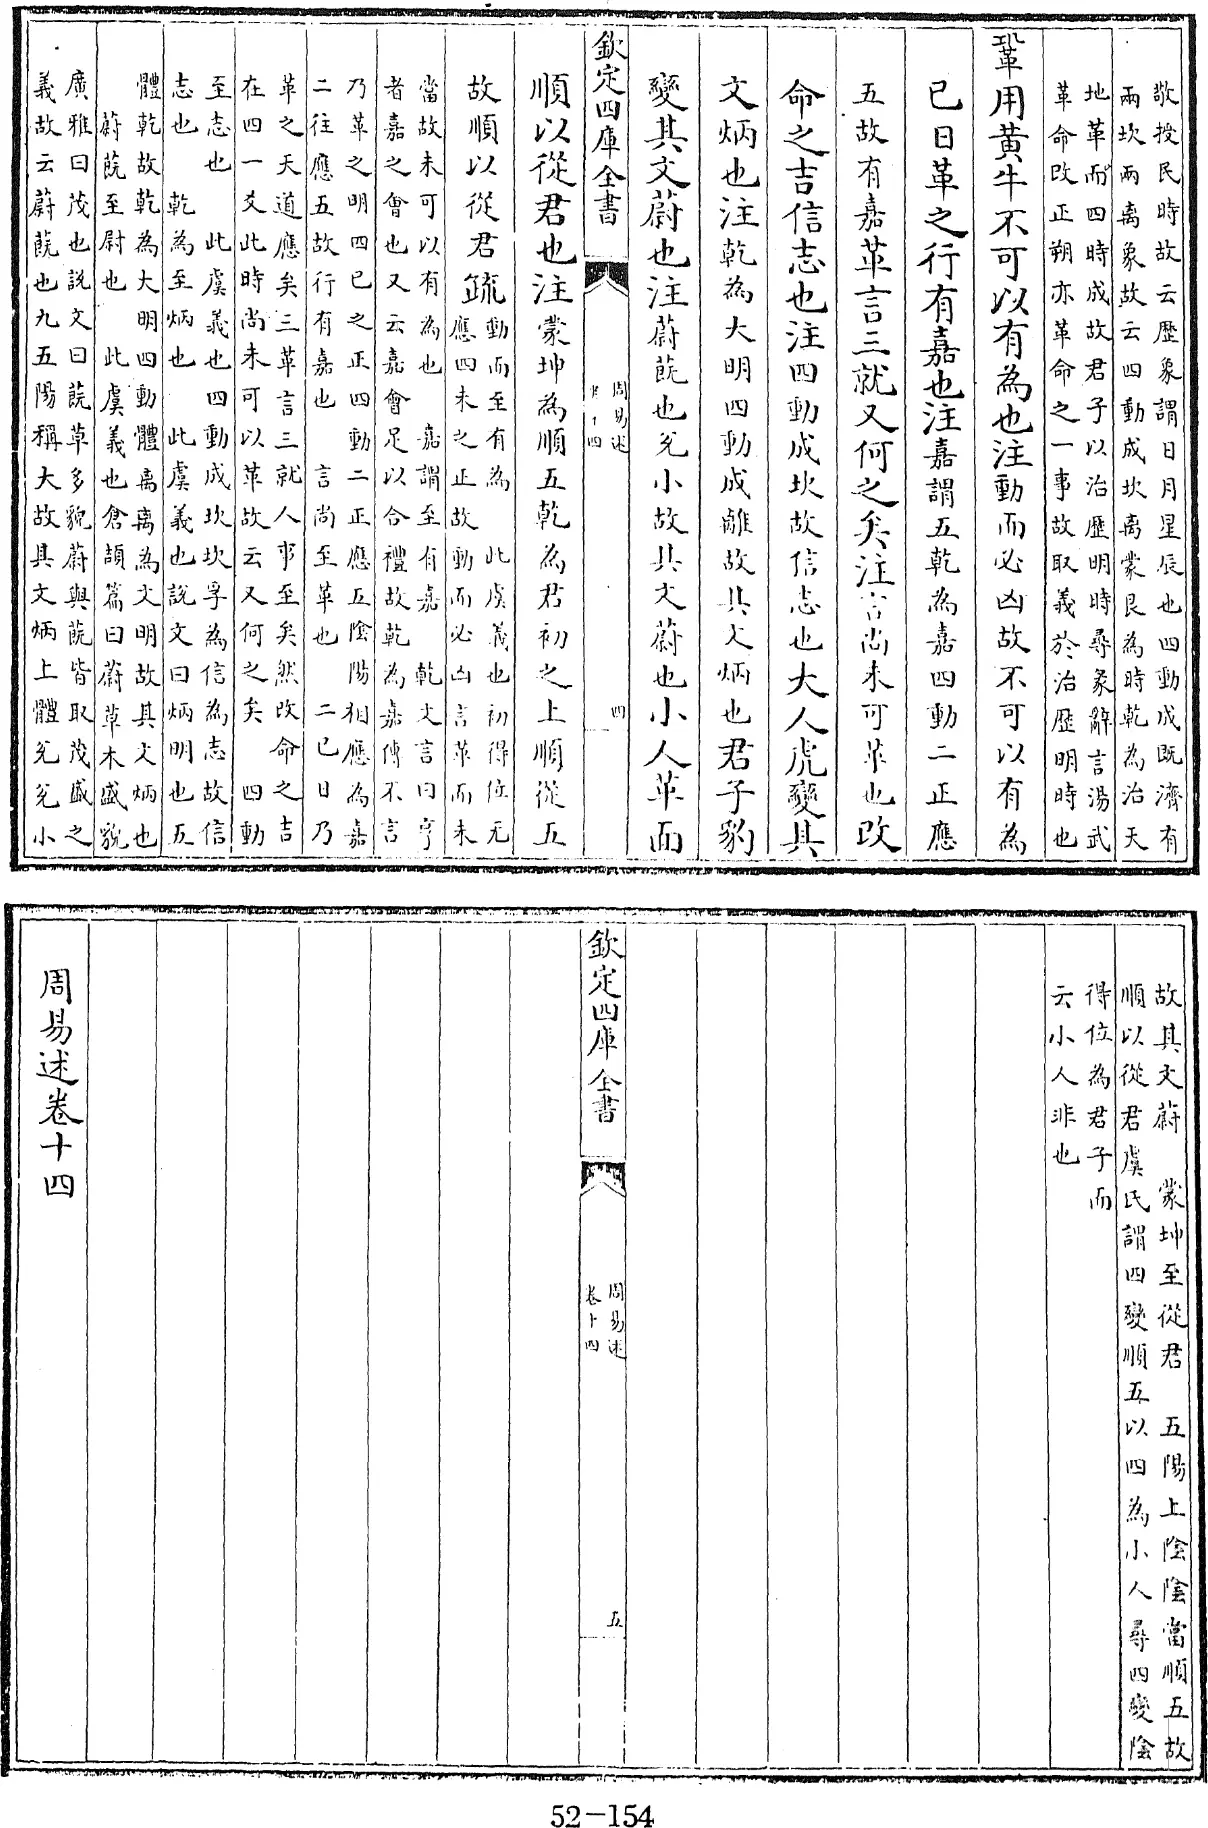 敬授民時故云歷象謂日月星辰也四動成既濟有
兩坎兩离象故云四動成坎离蒙艮為時乾為治天
地革而四時成故君子以治歷明時尋彖辭言湯武
革命改正朔亦革命之一事故取義於治歷明時也
鞏用黄牛不可以有為也注動而必凶故不可以有為
已日革之行有嘉也注嘉謂五乾為嘉四動二正應
五故有嘉革言三就又何之矣注言尚未可革也改
命之吉信志也注四動成坎故信志也大人虎變其
文炳也注乾為大明四動成離故其文炳也君子豹
變其文蔚也注蔚蔇也兌小故其文蔚也小人革面
欽定四庫全書
周易述
卷十四
四
順以從君也注蒙坤為順五乾為君初之上順從五
故順以從君疏
動而至有為 此虞義也初得位无
應四未之正故動而必凶言革而未
當故未可以有為也 嘉謂至有嘉 乾文言曰亨
者嘉之會也又云嘉會足以合禮故乾為嘉傳不言
乃革之明四已之正四動二正應五陰陽相應為嘉
二往應五故行有嘉也 言尚至革也 二已日乃
革之天道應矣三革言三就人事至矣然改命之吉
在四一爻此時尚未可以革故云又何之矣 四動
至志也 此虞義也四動成坎坎孚為信為志故信
志也 乾為至炳也 此虞義也說文曰炳明也五
體乾故乾為大明四動體离离為文明故其文炳也
蔚蔇至尉也 此虞義也倉頡篇曰蔚草木盛貌
廣雅曰茂也說文曰蔇草多貌蔚與蔇皆取茂盛之
義故云蔚蔇也九五陽稱大故其文炳上體兌兌小
故其文蔚 蒙坤至從君 五陽上陰陰當順五故
順以從君虞氏謂四變順五以四為小人尋四變陰
得位為君子而
云小人非也
欽定四庫全書
周易述
卷十四
五
周易述卷十四
52-154